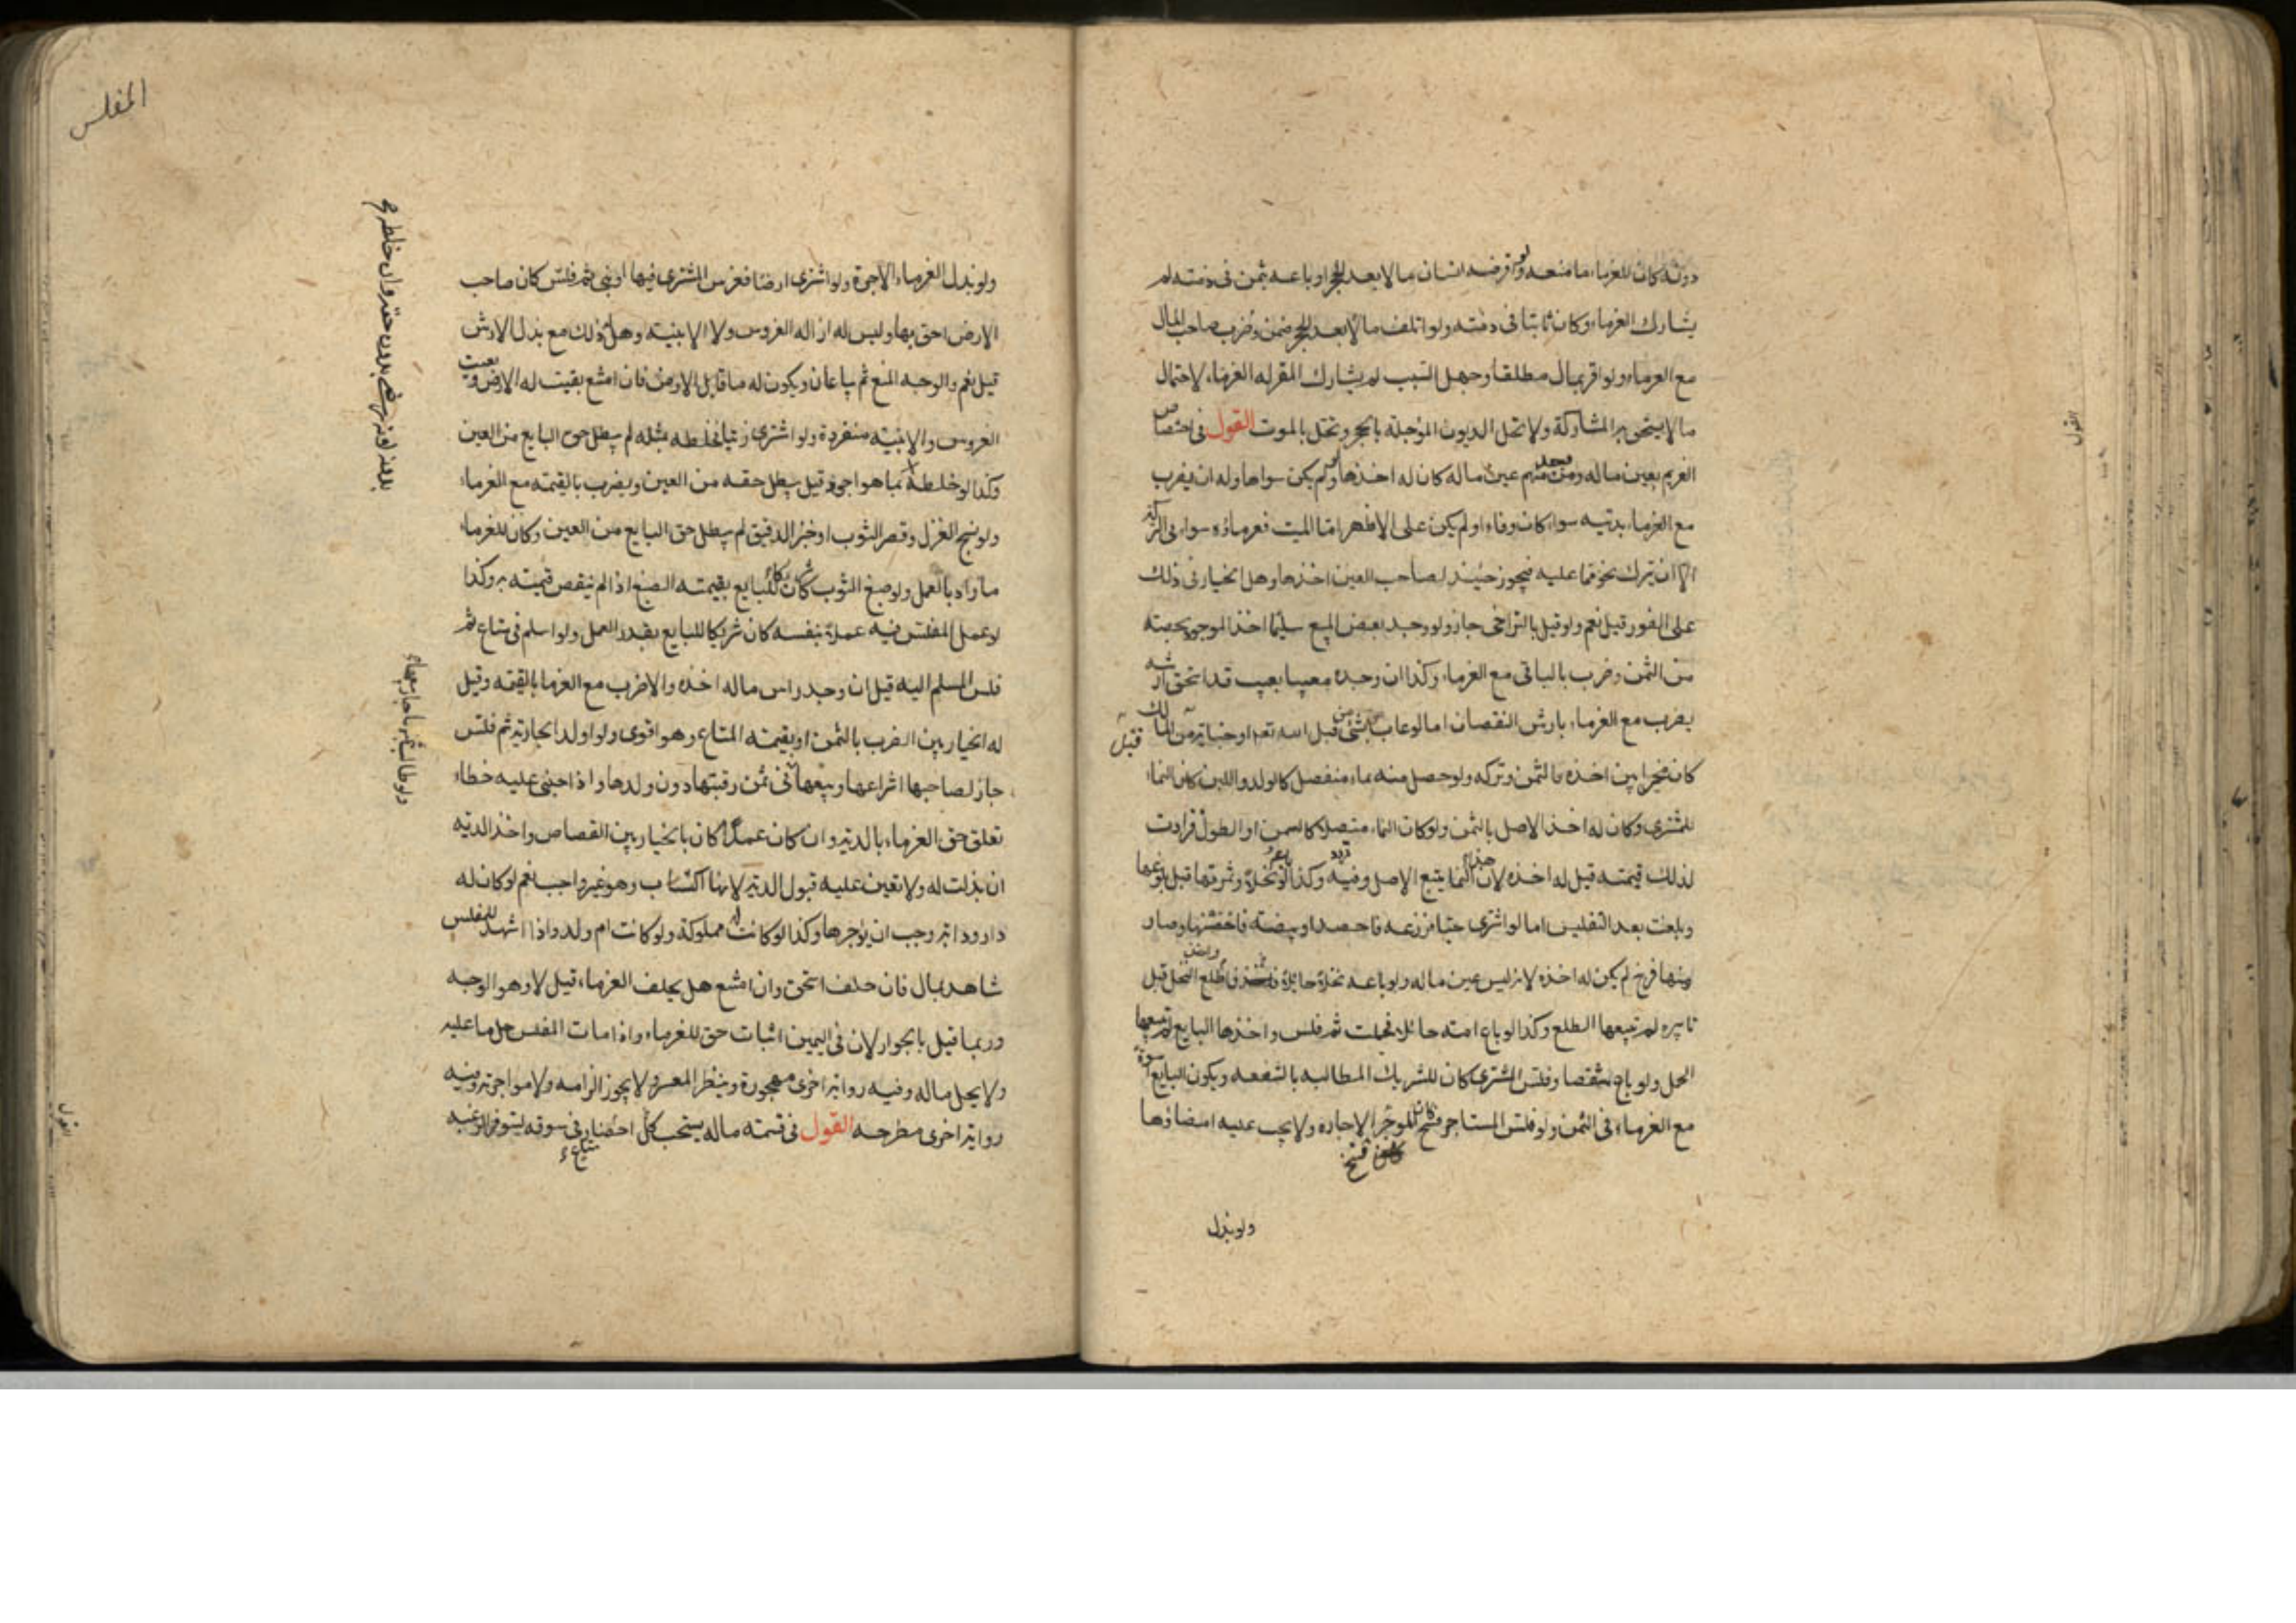 دونه كان للغرماء منعه ولو اقرضه انسان مالا بعد الحجر او باعه بثمن فى ذمته لم
يشارك الغرماء وكان ثابتا فى ذمته ولو اتلف مالا بعد الحجر ضمن وضرب صاحب المال
مع الغرماء ولو اقر بمال مطلقا وجهل السبب لم يشارك المقر له الغرماء لاحتمال
ما لا يستحق به المشاركة ولا تحل الديون المؤجلة بالحجر وتحل بالموت القول فى اختصاص
الغريم بعين ماله ومن وجد منهم عين ماله كان له اخذها ولو لم يكن سواها وله ان يضرب
مع الغرماء بدينه سواء كان وفاء او لم يكن على الاظهر اما الميت فغرماؤه سواء فى التركة
الا ان يترك نحوا مما عليه فيجوز حينئذ لصاحب العين اخذها وهل الخيار فى ذلك
على الفور قيل نعم ولو قيل بالتراخى جاز ولو وجد بعض المبيع سليما اخذ الموجود بحصته
من الثمن وضرب بالباقى مع الغرماء وكذا ان وجده معيبا بعيب قد استحق ارشه
يضرب مع الغرماء بارش النقصان اما لو عاب بشئ من قبل الله تعه او جناية من المالك
كان مخيرا بين اخذه بالثمن وتركه ولو حصل منه نماء منفصل كالولد واللبن كان النماء
للمشترى وكان له اخذ الاصل بالثمن ولو كان النماء متصلا كالسمن او الطول فزادت
لذلك قيمته قيل له اخذه لان هذا النما يتبع الاصل وفيه تردد وكذا لو باعه نخلا وثمرتها قبل بلوغها
وبلغت بعد التفليس اما لو اشترى حبا فزرعه فاحصد او بيضة فاحضنها وصار
منها فرخ لم يكن له اخذه لانه ليس عين ماله ولو باعه نخلا حائلا فاطلع او اخذ النخل قبل
تابيره لم يتبعها الطلع وكذا لو باع امته حائلا فحملت ثم فلس واخذها البايع لم يتبعها
الحمل ولو باع شقصا وفلس المشترى كان للشريك المطالبه بالشفعه ويكون البايع اسوة
مع الغرماء فى الثمن ولو فلس المستاجر كان للموجر فسخ الاجاره ولا يجب عليه امضاؤها
فسخ
ولو بذل
المفلس
ولو بذل الغرماء الاجرة ولو اشترى ارضا فغرس المشترى فيها او بنى ثم فلس كان صاحب
الارض احق بها وليس له ازاله الغروس ولا الابنيه وهل له ذلك مع بذل الارش
قيل نعم والوجه المنع ثم يباعان ويكون له ما قابل الارض فان امتنع بقيت له الارض وبيعت
الغروس والابنيه منفردة ولو اشترى زيتا فخلطه بمثله لم يبطل حق البايع من العين
وكذا لو خلطه بما هو اجود قيل يبطل حقه من العين ويضرب بالقيمه مع الغرماء
ولو نسج الغزل وقصر الثوب او خبز الدقيق لم يبطل حق البايع من العين وكان للغرماء
ما زاد بالعمل ولو صبغ الثوب كان شريكا للبايع بقيمته الصبغ اذا لم ينقص قيمته به وكذا
لو عمل المفلس فيه عملا بنفسه كان شريكا للبايع بقدر العمل ولو اسلم فى متاع ثم
فلس المسلم اليه قيل ان وجد راس ماله اخذه والا ضرب مع الغرما بالقيمه وقيل
له الخيار بين الضرب بالثمن او بقيمته المتاع وهو اقوى ولو اولد الجارية ثم فلس
جاز لصاحبها انتزاعها وبيعها فى ثمن رقبتها دون ولدها واذا جنى عليه خطاء
تعلق حق الغرماء بالدية وان كان عمدا كان بالخيار بين القصاص واخذ الديه
ان بذلت له ولا يتعين عليه قبول الدية لانها اكتساب وهو غير واجب نعم لو كان له
دار ودابة وجب ان يؤجرها وكذا لو كانت له مملوكة ولو كانت ام ولد واذا شهد للمفلس
شاهد بمال فان حلف استحق وان امتنع هل يحلف الغرماء قيل لا وهو الوجه
وربما قيل بالجواز لان فى اليمين اثبات حق للغرماء واذا مات المفلس حل ما عليه
ولا يحل ماله وفيه رواية اخرى مهجورة وينظر المعسر ولا يجوز الزامه ولا مواجرته وفيه
رواية اخرى مطرحه القول فى قسمته ماله يستحب احضار كل متاع فى سوقه ليتوفر الرغبه
ولو طالب بثمنها جاز بيعها